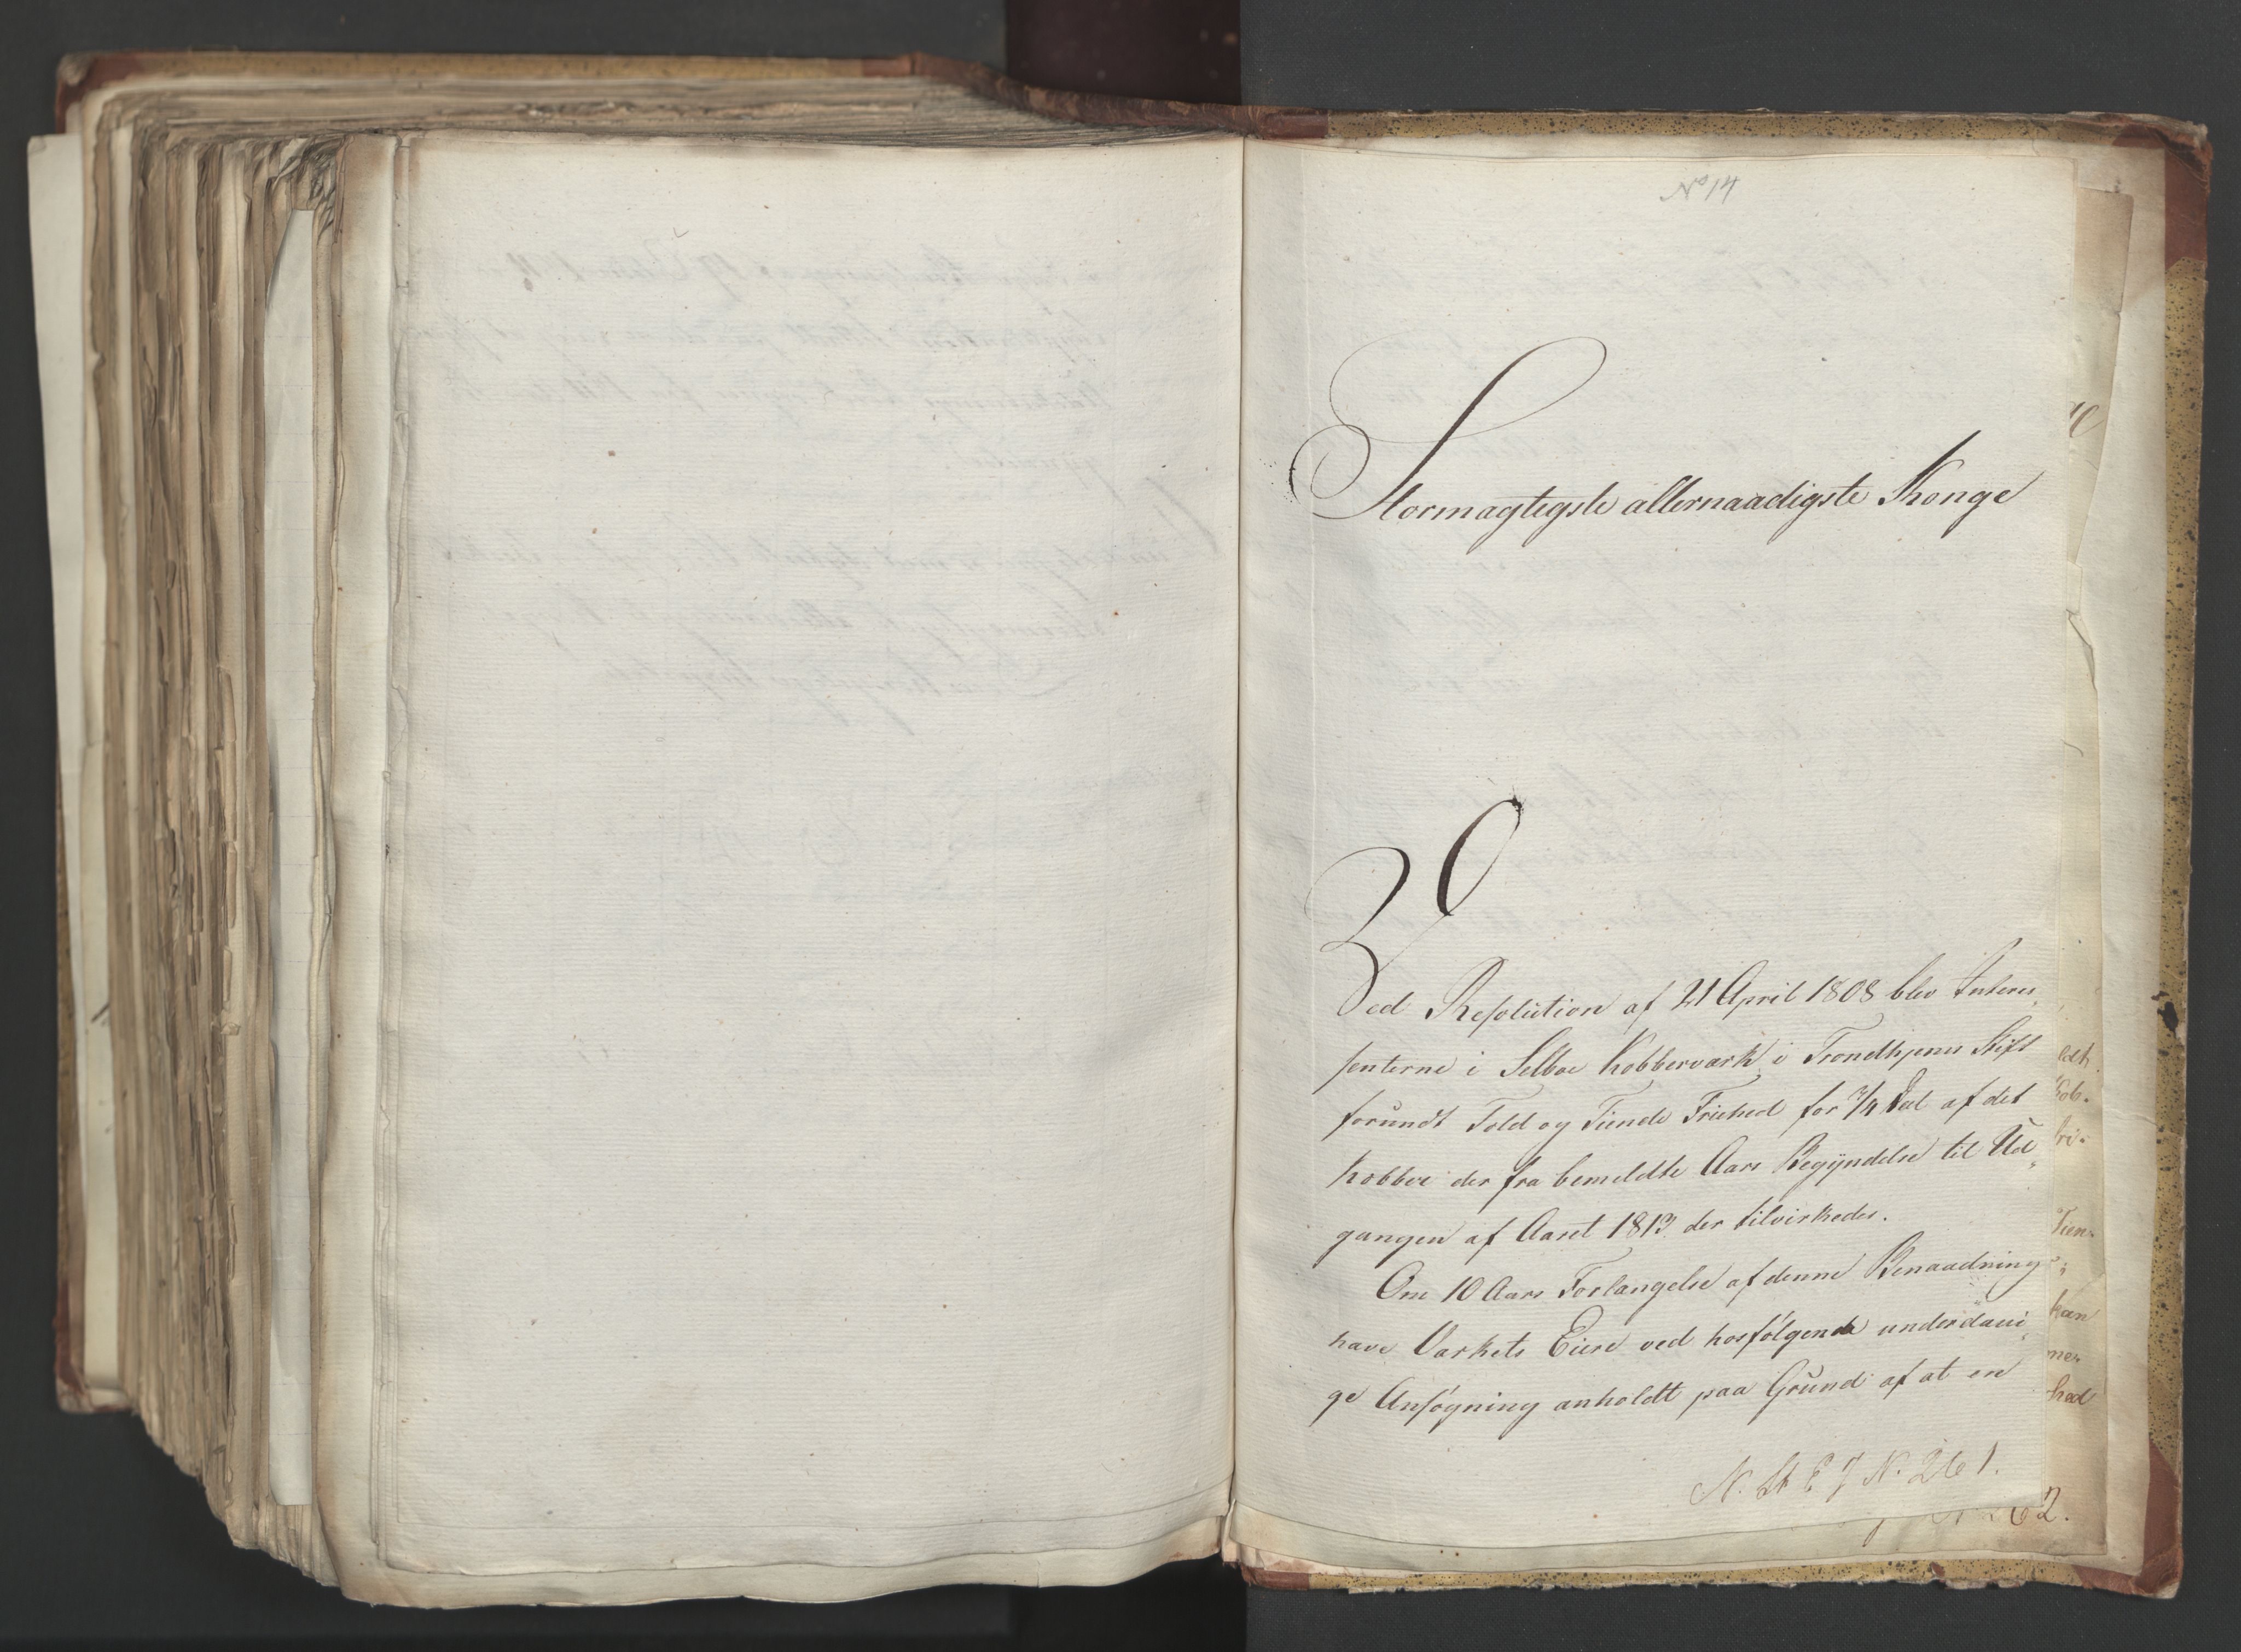 No 14
Stormagtigste allernaadigste Konge
Ved Resolution af 21 April 1808 blev Interes„
senterne i Selboe Kobberværk i Trondhjems Stift
forundt Told og Tiende Friehed for 3/4 Deel af det
Kobber der fra bemeldte Aars Begyndelse til Ud„
gangen af Aaret 1813 der tilvirkedes.
Om 10 Aars Forlængelse af denne Benaadning
have Værkets Eiere ved hosfølgende underdani„
ge Ansøgning anholdt paa Grund af at en
N. 261.
62.